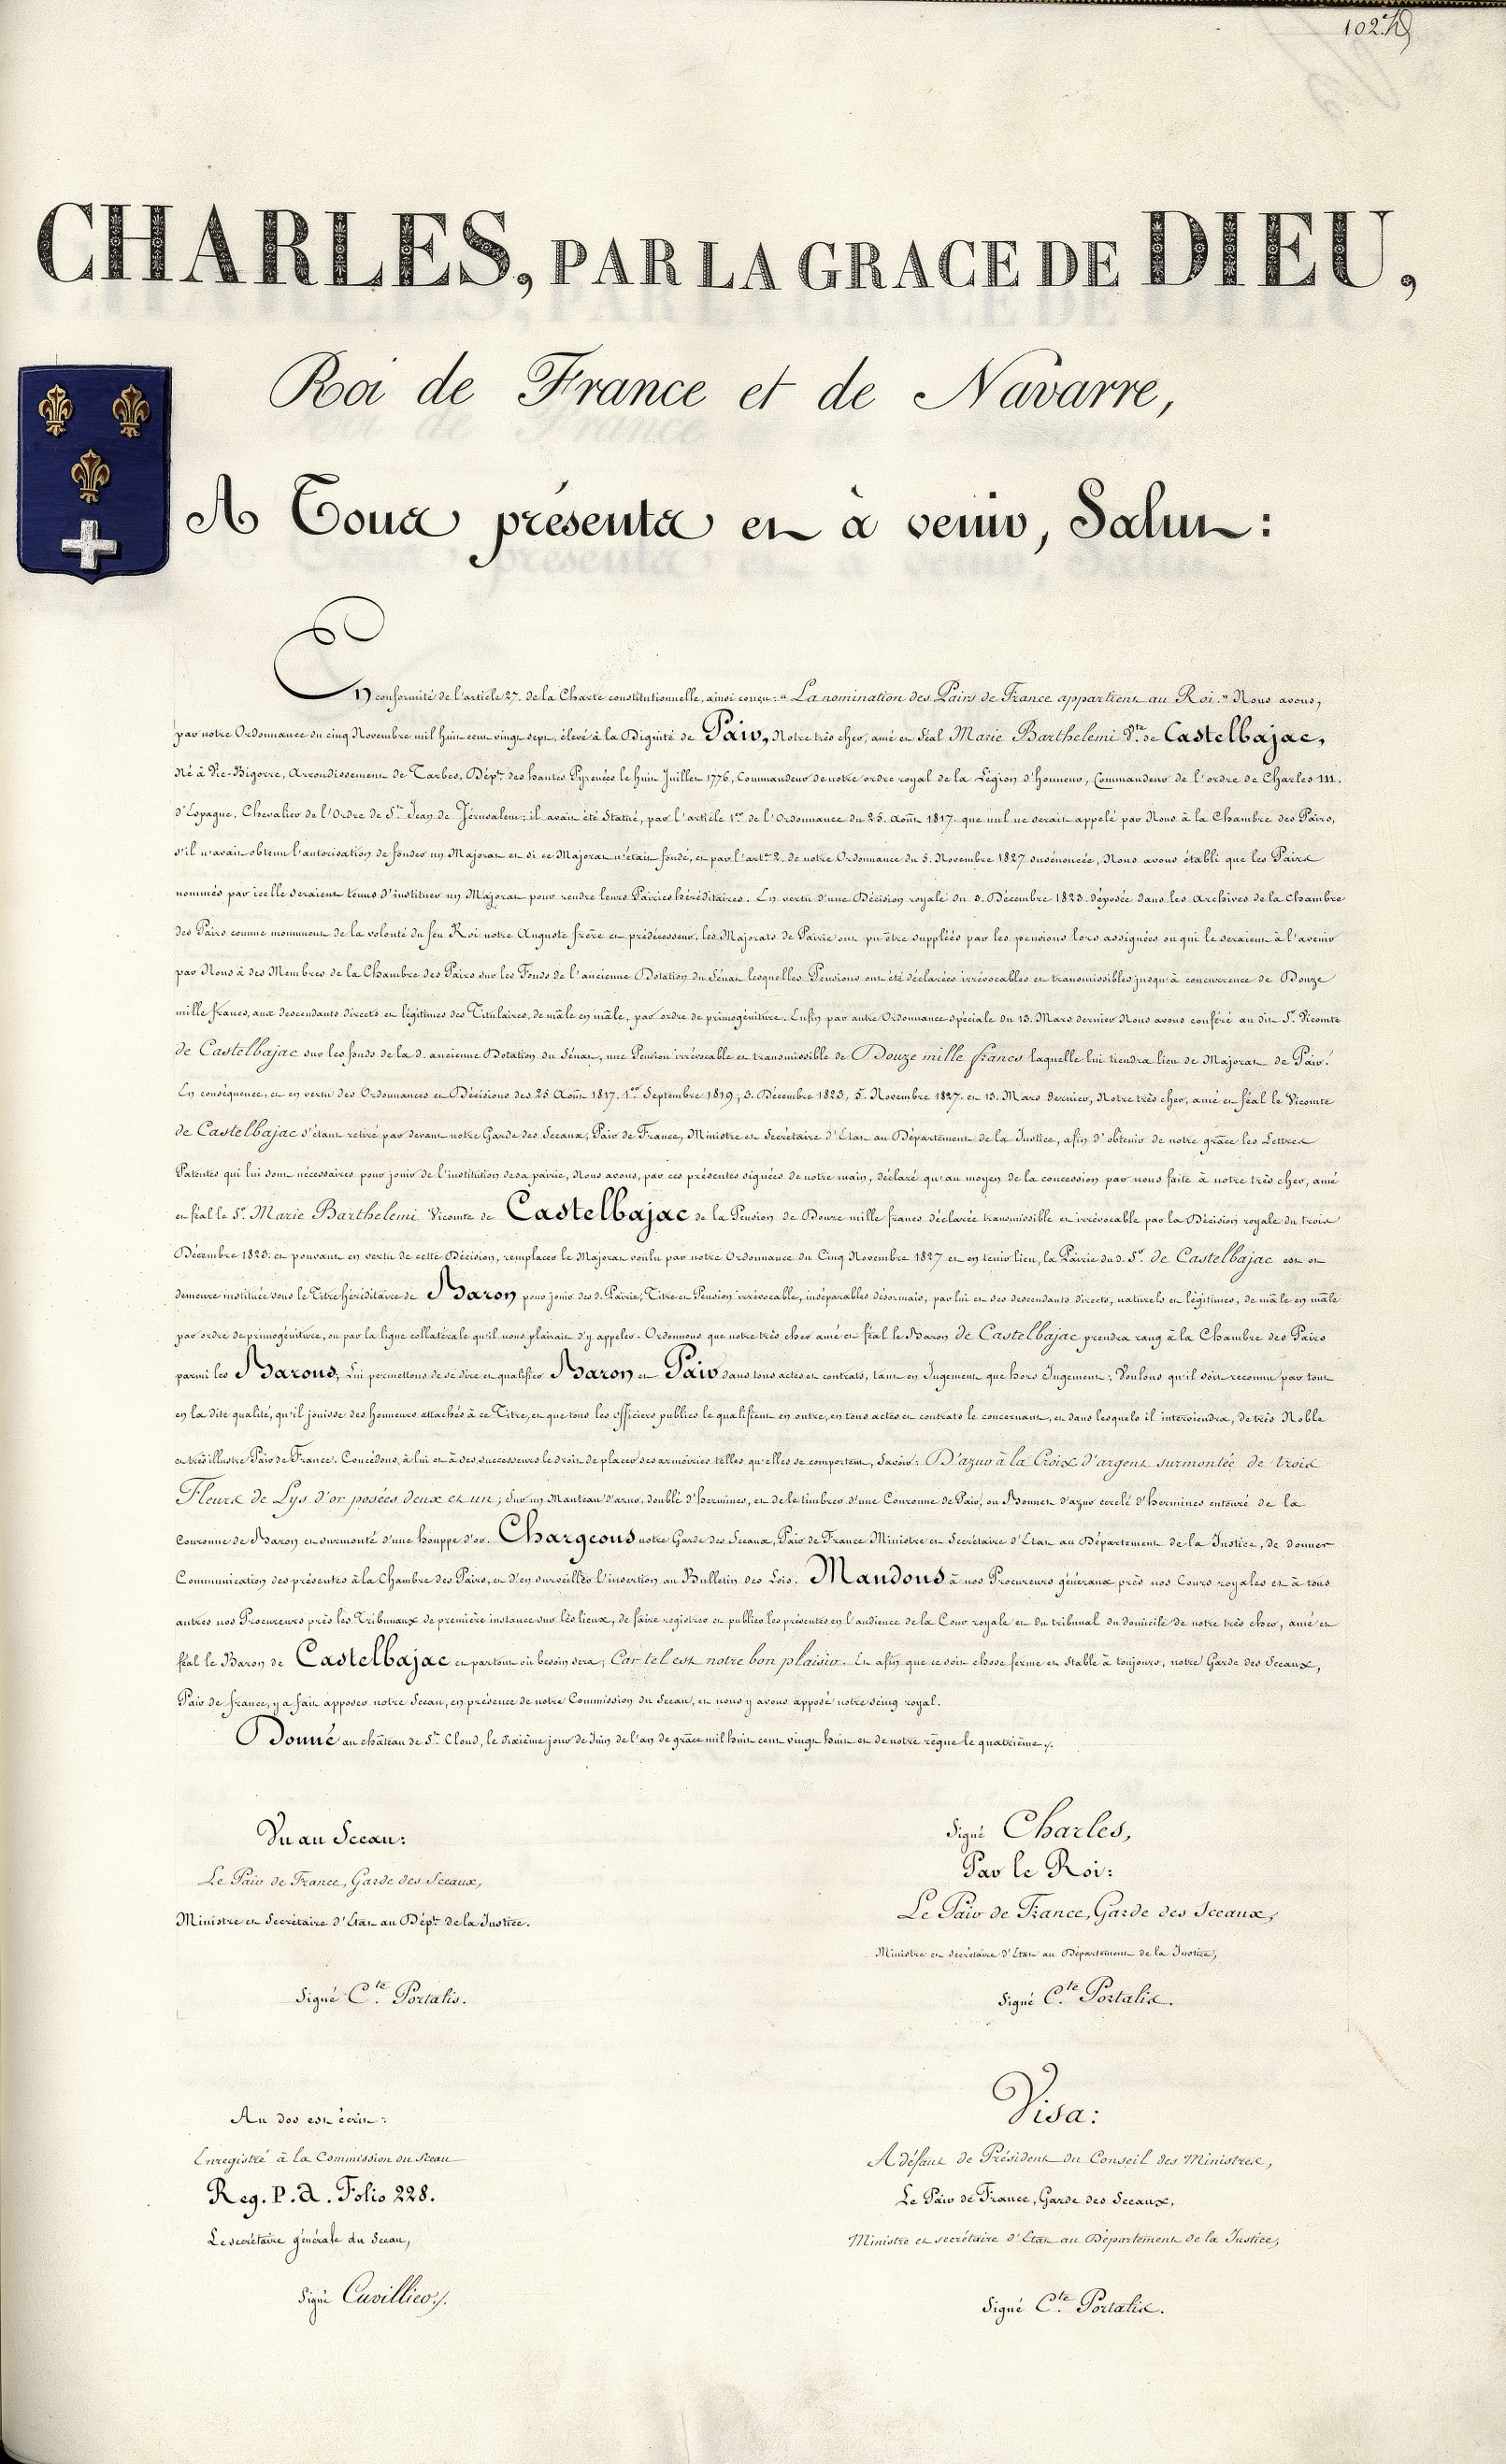 CHARLES, PAR LA GRACE DE DIEU,
Roi de France et de Navarre,
A Tous présents et à venir, Salut :
En conformité de l'article 27. de la Charte constitutionnelle, ainsi conçu : " La nomination des Pairs de France appartient au Roi. " Nous avons,
par notre Ordonnance du cinq Novembre mil huit cent vingt sept, élevé à la Dignité de Pair, Notre très cher, amé et féal Marie Barthelemi Vte. de Castelbajac,
né à Vic-Bigorre, Arrondissement de Tarbes, Dépt. des hautes Pyrénées le huit Juillet 1776, Commandeur de notre ordre royal de la Légion d'honneur, Commandeur de l'ordre de Charles III.
d'Espagne, Chevalier de l'Ordre de St. Jean de Jérusalem ; il avait été Statué, par l'article 1er. de l'Ordonnance du 25. Août 1817. que nul ne serait appelé par Nous à la Chambre des Pairs,
s'il n'avait obtenu l'autorisation de fonder un Majorat et si ce Majorat n'était fondé, et par l'art. 2. de notre Ordonnance du 5. Novembre 1827 susénoncée, Nous avons établi que les Pairs
nommés par icelle seraient tenus d'instituer un Majorat pour rendre leurs Pairies héréditaires. En vertu d'une Décision royale du 3. Décembre 1823. déposée dans les archives de la Chambre
des Pairs comme monument de la volonté du feu Roi notre Auguste frère et prédécesseur, les Majorats de Pairie ont pu être suppléés par les pensions lors assignées ou qui le seraient à l'avenir
par Nous à des Membres de la Chambre des Pairs sur les Fonds de l'ancienne Dotation du Sénat lesquelles Pensions ont été déclarées irrévocables et transmissibles jusqu'à concurrence de Douze
mille francs, aux descendants directs et légitimes des Titulaires, de mâle en mâle, par ordre de primogéniture. Enfin par autre Ordonnance spéciale du 13. Mars dernier Nous avons conféré au dit Sr. Vicomte
de Castelbajac sur les fonds de la d. ancienne Dotation du Sénat, une Pension irrévocable et transmissible de Douze mille francs laquelle lui tiendra lieu de Majorat de Pair.
En conséquence, et en vertu des Ordonnances et Décisions des 25. Août 1817. 1er. Septembre 1819 ; 3. Décembre 1823, 5. Novembre 1827. et 13. Mars dernier, Notre très cher, amé et féal le Vicomte
de Castelbajac s'étant retiré par devant notre Garde des Sceaux, Pair de France, Ministre et Secrétaire d'Etat au Département de la Justice, afin d'obtenir de notre grâce les Lettres
Patentes qui lui sont nécessaires pour jouir de l'institution de sa pairie, Nous avons, par ces présentes signées de notre main, déclaré qu'au moyen de la concession par nous faite à notre très cher, amé
et féal le Sr. Marie Barthelemi Vicomte de Castelbajac de la Pension de Douze mille francs déclarée transmissible et irrévocable par la Décision royale du trois
Décembre 1823. et pouvant en vertu de cette Décision, remplacer le Majorat voulu par notre Ordonnance du Cinq Novembre 1827 et en tenir lieu, la Pairie du d. Sr. de Castelbajac est et
demeure instituée sous le Titre héréditaire de Baron pour jouir des d. Pairie, Titre et Pension irrévocable, inséparables désormais, par lui et ses descendants directs, naturels et légitimes, de mâle en mâle
par ordre de primogéniture, ou par la ligne collatérale qu'il nous plairait d'y appeler. Ordonnons que notre très cher amé et féal le Baron de Castelbajac prendra rang à la Chambre des Pairs
parmi les Barons ; Lui permettons de se dire et qualifier Baron et Pair dans tous actes et contrats, tant en Jugement que hors Jugement ; Voulons qu'il soit reconnu par tout
en la dite qualité, qu'il jouisse des honneurs attachés à ce Titre, et que tous les officiers publics le qualifient en outre, en tous actes et contrats le concernant, et dans lesquels il interviendra, de très Noble
et très illustre Pair de France. Concédons, à lui et à ses successeurs le droit de placer ses armoiries telles qu'elles se comportent, Savoir : D'azur à la Croix d'argent surmontée de trois
Fleurs de Lys d'or posées deux et un ; Sur un Manteau d'azur, doublé d'hermines, et de le timbrer d'une Couronne de Pair, ou Bonnet d'azur cerclé d'hermines entouré de la
Couronne de Baron et surmonté d'une houppe d'or. Chargeons notre Garde des Sceaux, Pair de France Ministre et Secrétaire d'Etat au Département de la Justice, de donner
Communication des présentes à la Chambre des Pairs, et d'en surveiller l'insertion au Bulletin des Lois. Mandons à nos Procureurs généraux près nos Cours royales et à tous
autres nos Procureurs près les Tribunaux de première instance sur les lieux, de faire registrer et publier les présentes en l'audience de la Cour royale et du tribunal du domicile de notre très cher, amé et
féal le Baron de Castelbajac et partout où besoin sera ; Car tel est notre bon plaisir. Et afin que ce soit chose ferme et stable à toujours, notre Garde des Sceaux,
Pair de france, y a fait apposer notre Sceau, en présence de notre Commission du Sceau, et nous y avons apposé notre seing royal.
Donné au château de St. Cloud, le dixième jour de Juin de l'an de grâce mil huit cent vingt huit et de notre règne le quatrième ./.
Vu au Sceau :
Le Pair de France, Garde des Sceaux,
Ministre et Secrétaire d'Etat au Dépt. de la Justice.
Signé Cte. Portalis.
Signé Charles,
Par le Roi :
Le Pair de France, Garde des Sceaux,
Ministre et Secrétaire d'Etat au Département de la Justice,
Signé Cte. Portalis.
Au dos est écrit :
Enregistré à la Commission du Sceau
Reg. P. A. Folio 228.
Le secrétaire générale du Sceau,
Signé Cuvillier ./.
Visa :
A défaut de Président du Conseil des Ministres,
Le Pair de France, Garde des Sceaux,
Ministre et secrétaire d'Etat au Département de la Justice,
Signé Cte. Portalis.